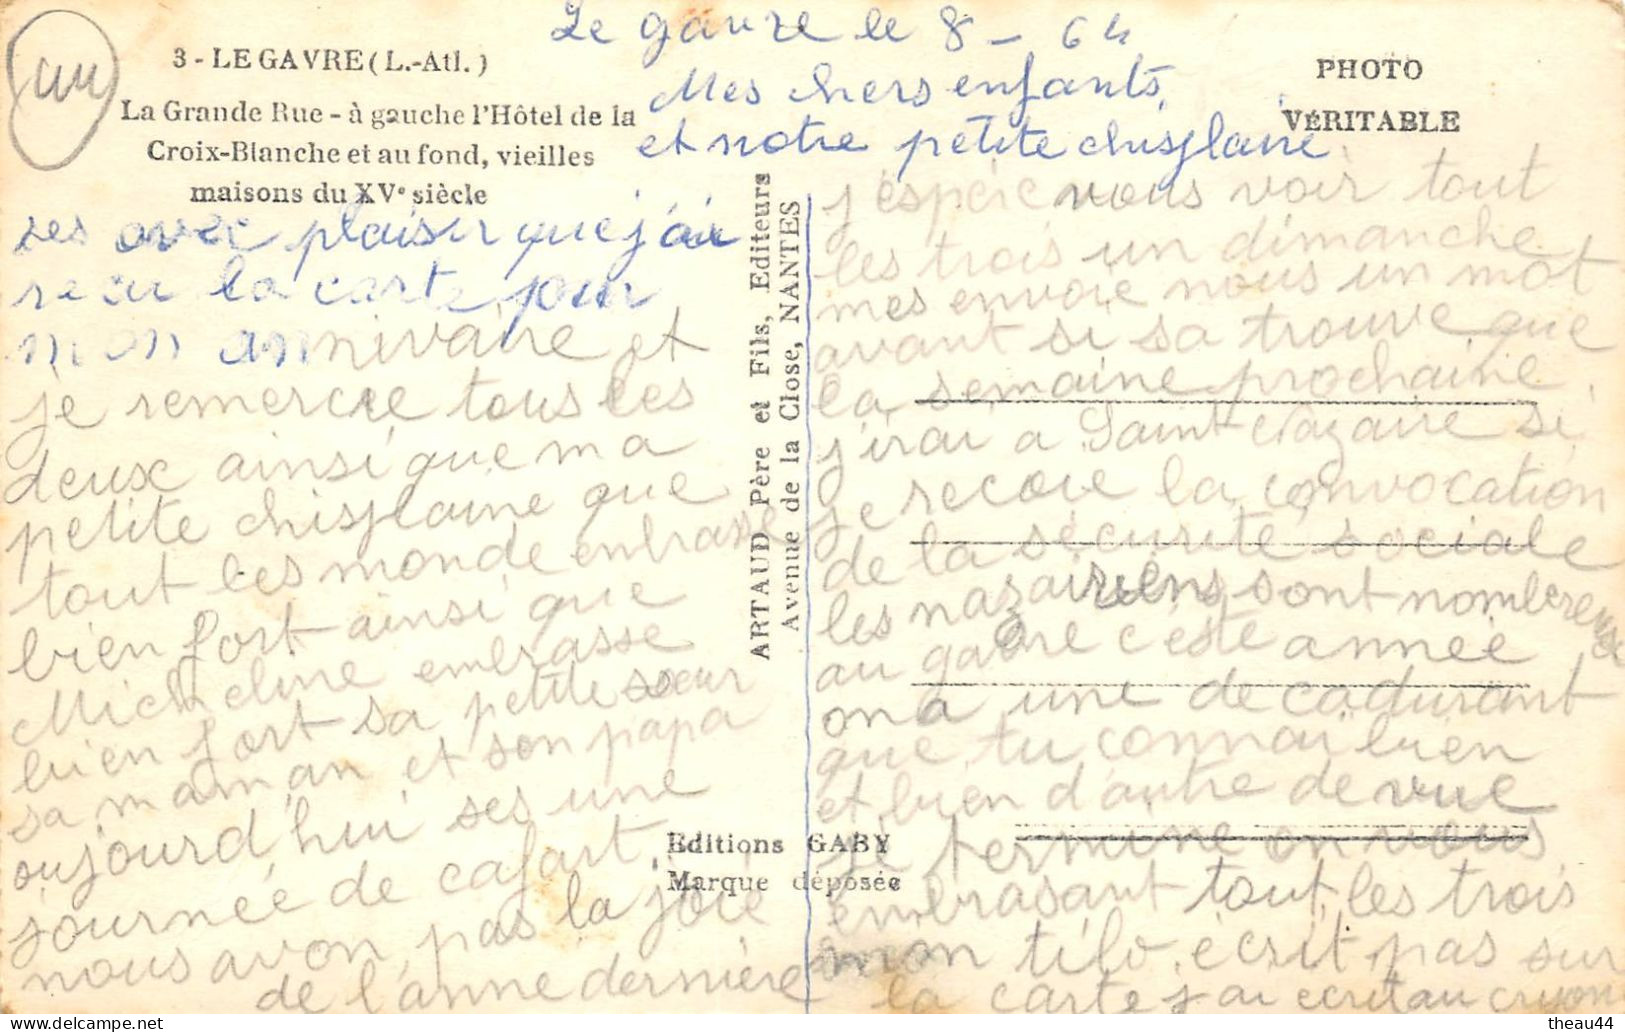 44
3 - LE GAVRE (L.-Atl.)
La Grande Rue - à gauche l'Hôtel de la
Croix-Blanche et au fond, vieilles
maisons du XVe siècle
PHOTO
VÉRITABLE
Le gavre le 8 - 64
Mes chers enfants
et notre petite chisflaine
ses avec plaisir que j'ai
recu la carte pour
mon annivaire et
je remercie tous les
deux ainsi que ma
petite chisflaine que
tout les monde enbrasse
bien fort ainsi que
Micheline embrasse
bien fort sa petite sœur
sa maman et son papa
oujourd'hui ses une
journée de cafart
nous avon pas la joie
de l'anne dernière
ARTAUD Père et Fils, Editeurs
Avenue de la Close, NANTES
Editions GABY
Marque déposée
j'espéie vous voir tout
les trois un dimanche
mes envoie nous un mot
avant si sa trouve que
la semaine prochaine
j'irai a Saint Nazaire si
je recoie la convocation
de la sécurité sociale
les nazairiens sont nombreuse
au gavre c'este année
on a une de cadurant
que tu connai bien
et bien d'autre de vue
Je termine on vous
embrasant tout les trois
mon tilo écrit pas sur
la carte j'ai ecrit au cryon
theau44